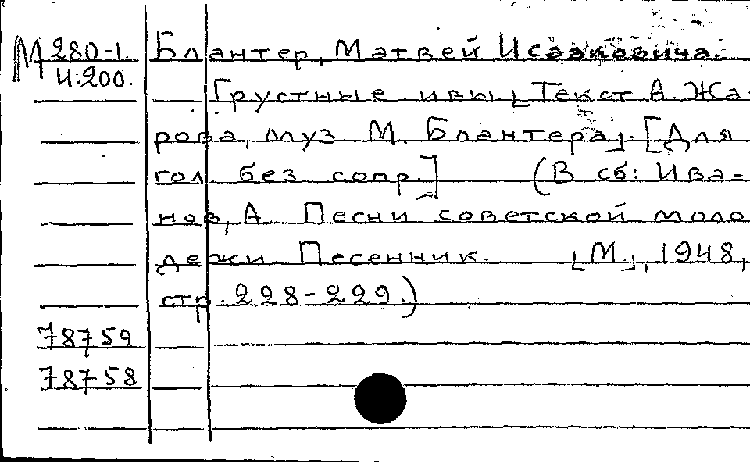 М 280-1. Блантер, Матвей Исаакович.
И.200.
Грустные ивы [Текст А Жа-
рова, муз М. Блантера]. [Для
гол без сопр.] (В сб: Ива-
нов, А Песни советской моло
дежи Песенник. [М.], 1948,
стр. 228-229.)
78759
78758